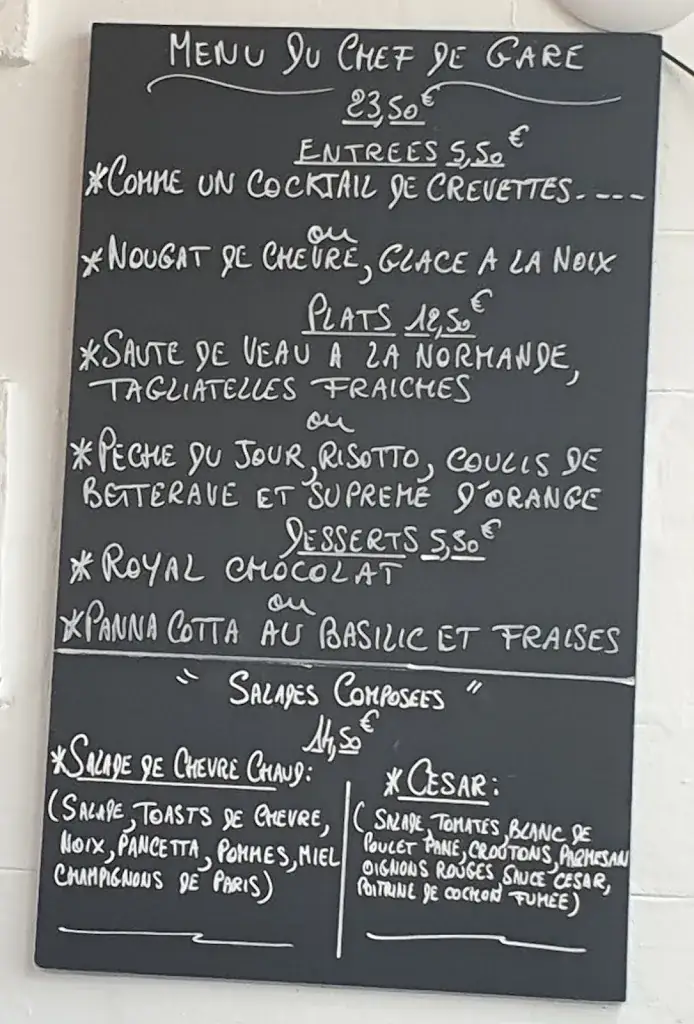 MENU DU CHEF DE GARE
23,50€
ENTREES 5,50€
*COMME UN COCKTAIL DE CREVETTES.----
ou
*NOUGAT DE CHEVRE, GLACE A LA NOIX
PLATS 12,50€
*SAUTE DE VEAU A LA NORMANDE,
TAGLIATELLES FRAICHES
ou
*PECHE DU JOUR, RISOTTO, COULIS DE
BETTERAVE ET SUPREME D'ORANGE
DESSERTS 5,50€
*ROYAL CHOCOLAT
ou
*PANNA COTTA AU BASILIC ET FRAISES
" SALADES COMPOSEES "
14,50€
*SALADE DE CHEVRE CHAUD:
(SALADE, TOASTS DE CHEVRE,
NOIX, PANCETTA, POMMES, MIEL
CHAMPIGNONS DE PARIS)
*CESAR:
(SALADE, TOMATES, BLANC DE
POULET PANE, CROUTONS, PARMESAN
OIGNONS ROUGES, SAUCE CESAR,
POITRINE DE COCHON FUMEE)